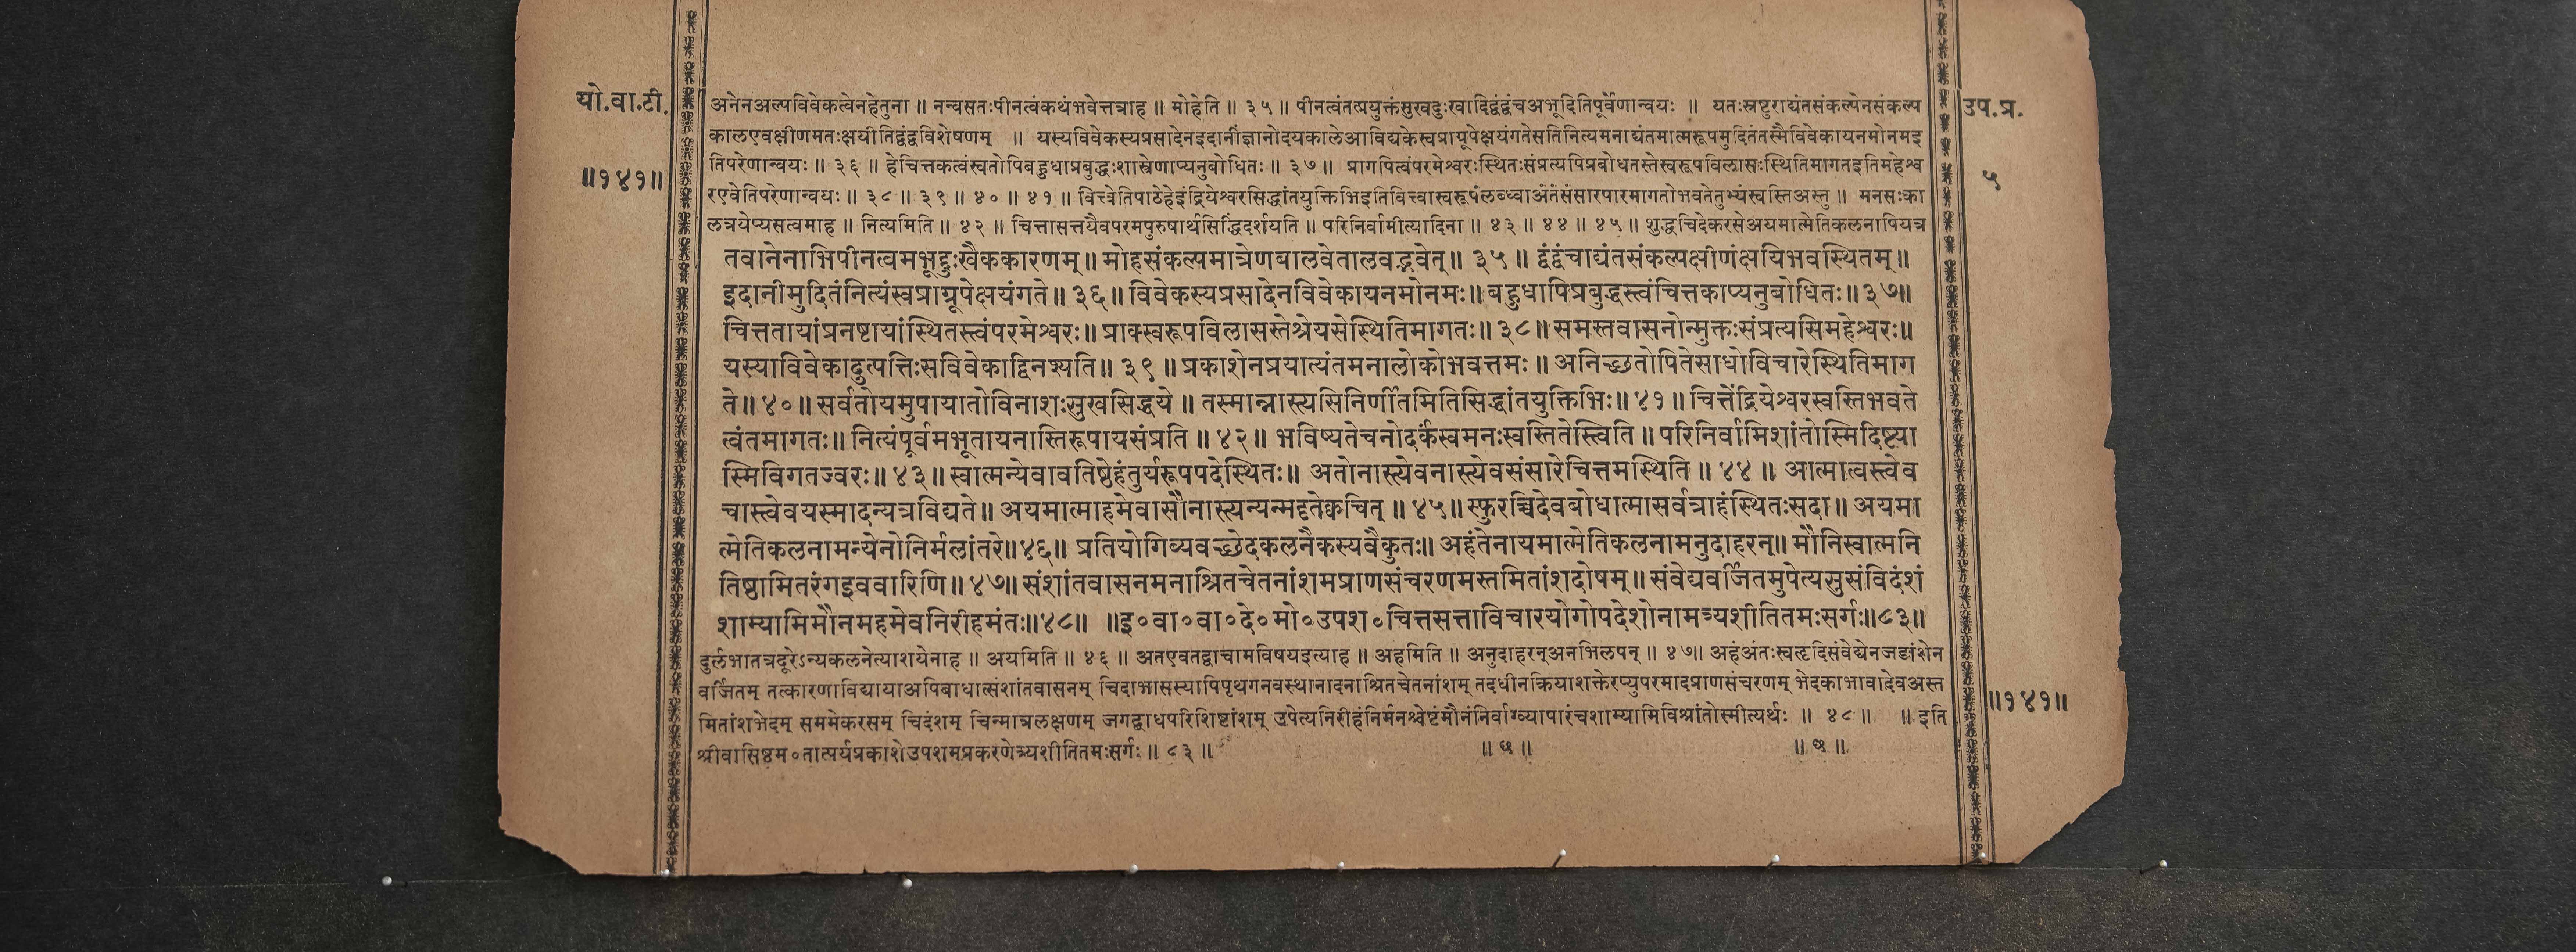 यो.वा.टी.
॥१४१॥
उप.प्र.
५
अनेनअल्पविवेकत्वेनहेतुना ॥ नन्वसतःपीनत्वंकथंभवेत्तत्राह ॥ मोहेति ॥ ३५ ॥ पीनत्वंतत्प्रयुक्तंसुखदुःखादिद्वंद्वंचअभूदितिपूर्वेणान्वयः ॥ यतःस्रष्टुराद्यंतसंकल्पेनसंकल्प
कालएवक्षीणमतःक्षयीतिद्वंद्वविशेषणम् ॥ यस्यविवेकस्यप्रसादेनइदानींज्ञानोदयकालेआविद्यकेस्वप्राग्रूपेक्षयंगतेसतिनित्यमनाद्यंतमात्मरूपमुदितंतस्मैविवेकायनमोनमइ
तिपरेणान्वयः ॥ ३६ ॥ हेचित्तकत्वंस्वतोपिबहुधाप्रबुद्धःशास्त्रेणाप्यनुबोधितः ॥ ३७ ॥ प्रागपित्वंपरमेश्वरःस्थितःसंप्रत्यपिप्रबोधतस्तेस्वरूपविलासःस्थितिमागतइतिमहेश्व
रएवेतिपरेणान्वयः ॥ ३८ ॥ ३९ ॥ ४० ॥ ४१ ॥ वित्त्वेतिपाठेहेइंद्रियेश्वरसिद्धांतयुक्तिभिइतिवित्त्वास्वरूपंलब्ध्वाअंतंसंसारपारमागतोभवतेतुभ्यंस्वस्तिअस्तु ॥ मनसःका
लत्रयेप्यसत्वमाह ॥ नित्यमिति ॥ ४२ ॥ चित्तासत्तयैवपरमपुरुषार्थसिद्धिंदर्शयति ॥ परिनिर्वामीत्यादिना ॥ ४३ ॥ ४४ ॥ ४५ ॥ शुद्धचिदेकरसेअयमात्मेतिकलनापियत्र
तवानेनाभिपीनत्वमभूद्दुःखैककारणम् ॥ मोहसंकल्पमात्रेणबालवेतालवद्भवेत् ॥ ३५ ॥ द्वंद्वंचाद्यंतसंकल्पक्षीणंक्षयिभवस्थितम् ॥
इदानीमुदितंनित्यंस्वप्राग्रूपेक्षयंगते ॥ ३६ ॥ विवेकस्यप्रसादेनविवेकायनमोनमः ॥ बहुधापिप्रबुद्धस्त्वंचित्तकाप्यनुबोधितः ॥ ३७ ॥
चित्ततायांप्रनष्टायांस्थितस्त्वंपरमेश्वरः ॥ प्राक्स्वरूपविलासस्तेश्रेयसेस्थितिमागतः ॥ ३८ ॥ समस्तवासनोन्मुक्तःसंप्रत्यसिमहेश्वरः ॥
यस्याविवेकादुत्पत्तिःसविवेकाद्विनश्यति ॥ ३९ ॥ प्रकाशेनप्रयात्यंतमनालोकोभवत्तमः ॥ अनिच्छतोपितेसाधोविचारेस्थितिमाग
ते ॥ ४० ॥ सर्वतोयमुपायातोविनाशःसुखसिद्धये ॥ तस्मान्नास्त्यसिनिर्णीतमितिसिद्धांतयुक्तिभिः ॥ ४१ ॥ चित्तेंद्रियेश्वरस्वस्तिभवते
त्वंतमागतः ॥ नित्यंपूर्वमभूतायनास्तिरूपायसंप्रति ॥ ४२ ॥ भविष्यतेचनोदर्कंस्वमनःस्वस्तितेस्त्विति ॥ परिनिर्वामिशांतोस्मिदिष्ट्या
स्मिविगतज्वरः ॥ ४३ ॥ स्वात्मन्येवावतिष्ठेहंतुर्यरूपपदेस्थितः ॥ अतोनास्त्येवनास्त्येवसंसारेचित्तमस्थिति ॥ ४४ ॥ आत्मात्वस्त्वेव
चास्त्वेवयस्मादन्यन्नविद्यते ॥ अयमात्माहमेवासौनास्त्यन्यन्मदृतेक्वचित् ॥ ४५ ॥ स्फुरच्चिदेवबोधात्मासर्वत्राहंस्थितःसदा ॥ अयमा
त्मेतिकलनामन्येनोनिर्मलांतरे ॥ ४६ ॥ प्रतियोगिव्यवच्छेदकलनैकस्यवैकुतः ॥ अहंतेनायमात्मेतिकलनामनुदाहरन् ॥ मौनिस्वात्मनि
तिष्ठामितरंगइववारिणि ॥ ४७ ॥ संशांतवासनमनाश्रितचेतनांशमप्राणसंचरणमस्तमितांशदोषम् ॥ संवेद्यवर्जितमुपेत्यसुसंविदंशं
शाम्यामिमौनमहमेवनिरीहमंतः ॥ ४८ ॥ ॥ इ॰वा॰वा॰दे॰मो॰उपश॰चित्तसत्ताविचारयोगोपदेशोनामत्र्यशीतितमःसर्गः ॥ ८३ ॥
दुर्लभातत्रदूरेऽन्यकलनेत्याशयेनाह ॥ अयमिति ॥ ४६ ॥ अतएवतद्वाचामविषयइत्याह ॥ अहमिति ॥ अनुदाहरन्अनभिलपन् ॥ ४७ ॥ अहंअंतःस्वहृदिसंवेद्येनजडांशेन
वर्जितम् तत्कारणाविद्यायाअपिबाधात्संशांतवासनम् चिदाभासस्यापिपृथगनवस्थानादनाश्रितचेतनांशम् तदधीनक्रियाशक्तेरप्युपरमादप्राणसंचरणम् भेदकाभावादेवअस्त
मितांशभेदम् सममेकरसम् चिदंशम् चिन्मात्रलक्षणम् जगद्बाधपरिशिष्टांशम् उपेत्यनिरीहंनिर्मनश्चेष्टंमौनंनिर्वाग्व्यापारंचशाम्यामिविश्रांतोस्मीत्यर्थः ॥ ४८ ॥ ॥ इति
श्रीवासिष्ठम॰तात्पर्यप्रकाशेउपशमप्रकरणेत्र्यशीतितमःसर्गः ॥ ८३ ॥ ॥ छ ॥ ॥ छ ॥
॥१४१॥